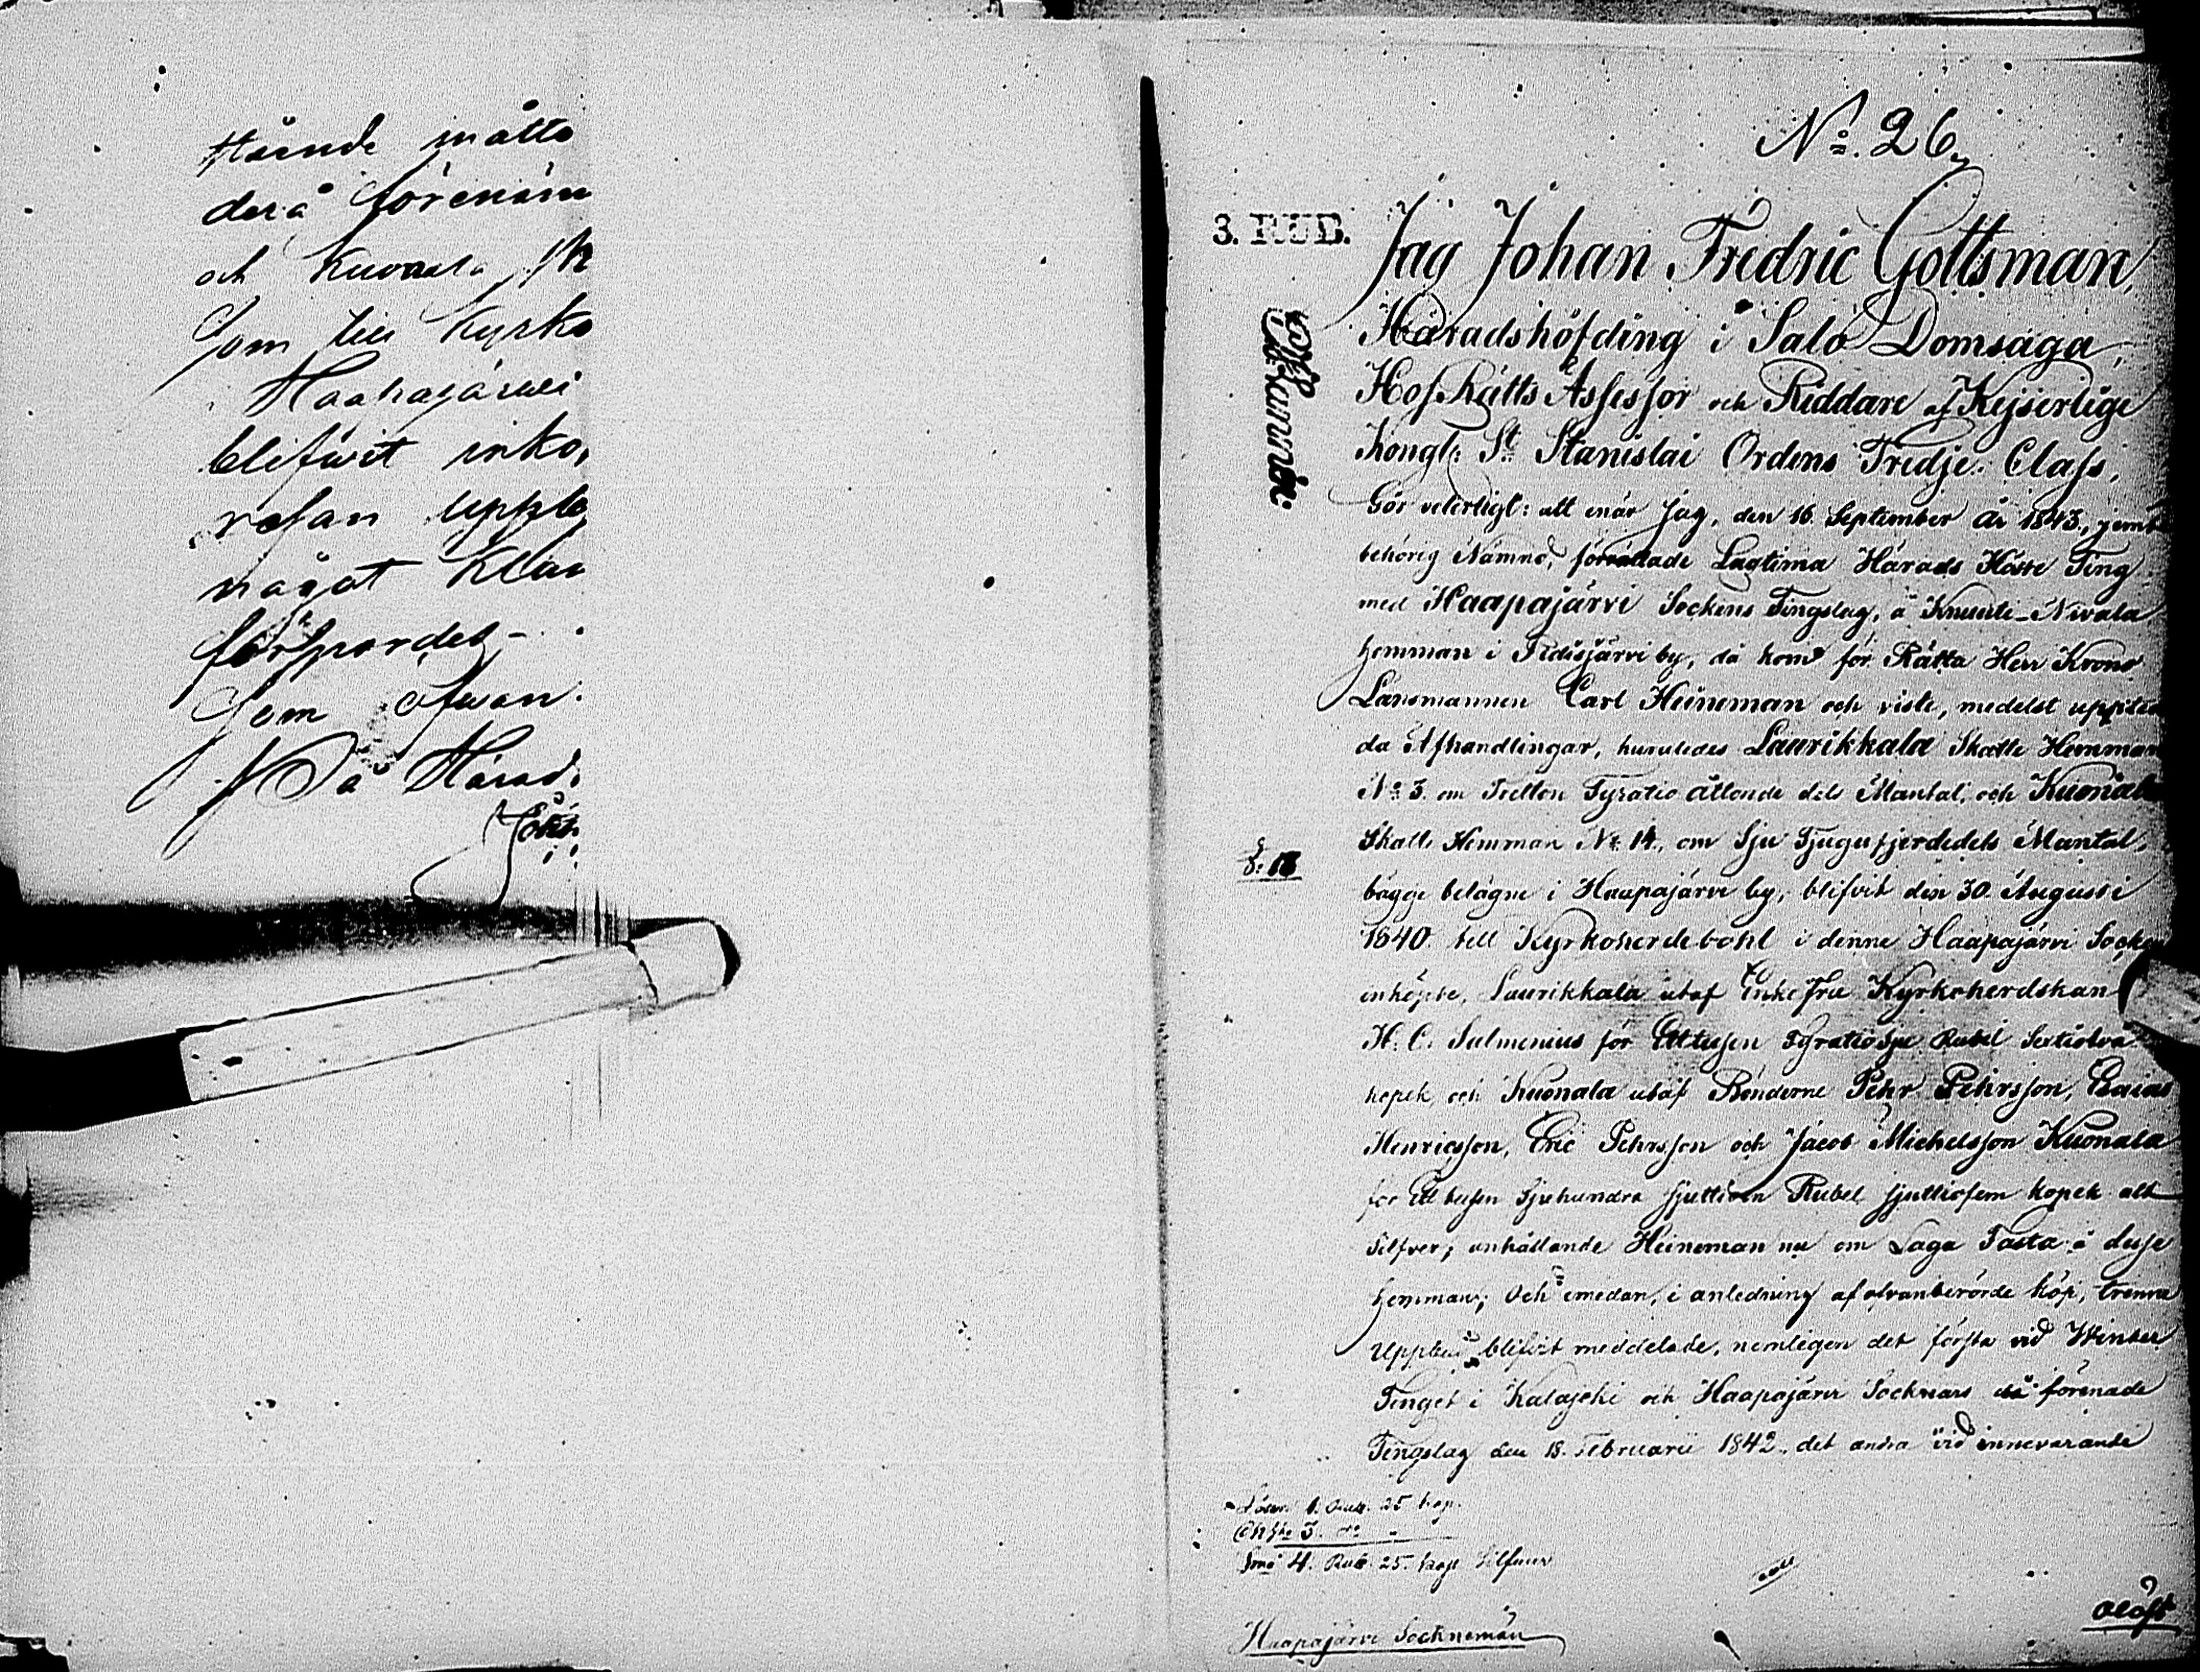 stående måtto
derå förenäm
och Kuonala
Som till Kyrko
Haapajärvi
blifwit inkö
refan uppb
något Klan
förspordet
Som ofwan.
På Härad
N:o 26.
3. RUB.
Jag Johan Fredric Gottsman,
Häradshöfding i Salo Domsaga,
HofRätts Assessor och Riddare af Kejserlige
Kongl: S:t Stanislai Ordens Tredje Class,
Gör veterligt: att enär Jag, den 16. September År 1843, jemte
behörig Nämnd, förrättade Lagtima Härads Höste Ting
med Haapajärvi Sockens Tingslag, å Knuuti-Nivala
hemman i Pidisjärvi by, då kom för Rätta Herr Krono
Länsmannen Carl Heineman och viste, medelst uppted
da Afhandlingar, huruledes Laurikkala Skatte Hemman
N:o 3. om Tretton Fyratio åttonde dels Mantal, och Kuonala
Skatte Hemman N:o 14, om Sju Tjugufjerdedels Mantal,
bägge belägne i Haapajärvi by, blifvit den 30. Augusti
1840. till Kyrkoherdebohl i denne Haapajärvi Socken
inköpte, Laurikkala utaf EnkeFru Kyrkoherdskan
H. C. Salmenius för Ett tusen Fyratiosju Rubel Sextiotvå
kopek, och Kuonala utaf Bönderne Pehr Pehrsson, Esaias
Henricsson, Eric Pehrsson och Jacob Michelsson Kuonala
för Ett tusen Sjuhundra sjuttioen Rubel sjuttiofem kopek allt
Silfver; anhållande Heineman nu om Laga Fasta å desse
hemman; Och emedan, i anledning af ofvanberörde köp, trenne
Uppbud blifvit meddelade, nemligen det första vid Winter
Tinget i Kalajoki och Haapajärvi Socknars då förenade
Tingslag den 18. Februarii 1842, det andra vid innevarande
Lösen 1. Rub. 25 kop.
3.
Sma 4. Rub. 25. kop Silfver
Haapajärvi Sockneman